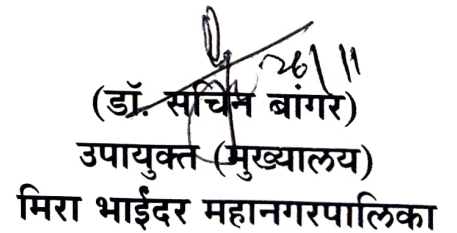 26/11
(डॉ. सचिन बांगर)
उपायुक्त (मुख्यालय)
मिरा भाईंदर महानगरपालिका